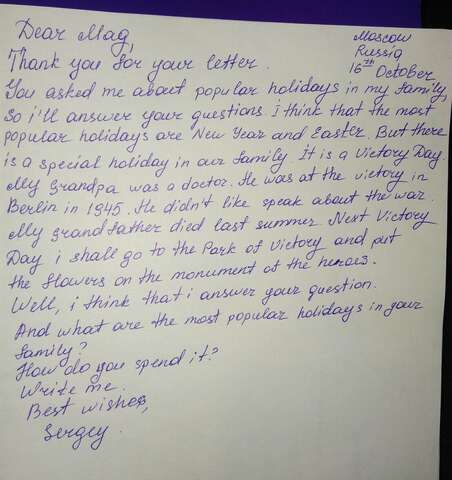 Dear Mag,
Moscow
Russia
16th October
Thank you for your letter.
You asked me about popular holidays in my family,
So i'll answer your questions. i think that the most
popular holidays are New Year and Easter. But there
is a special holiday in our family. It is a Victory Day.
My grandpa was a doctor. He was at the victory in
Berlin in 1945. He didn't like speak about the war.
My grandfather died last summer. Next Victory
Day i shall go to the Park of Victory and put
the flowers on the monument of the heroes.
Well, i think that i answer your question.
And what are the most popular holidays in your
family?
How do you spend it?
Write me.
Best wishes,
Sergey.